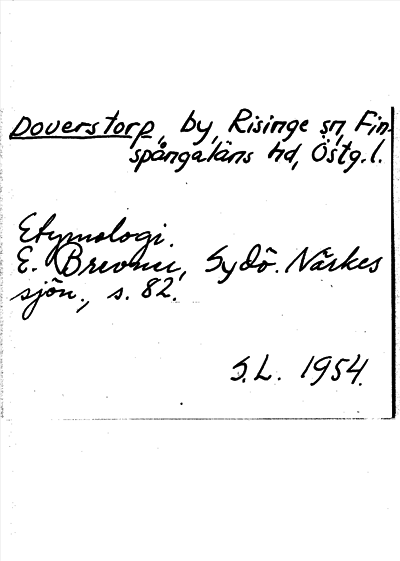 Doverstorp, by, Risinge sn, Fin-
spångaläns hd, Östg.l.
Etymologi.
E. Brevner, Sydö. Närkes
sjön., s. 82.
S.L. 1954.